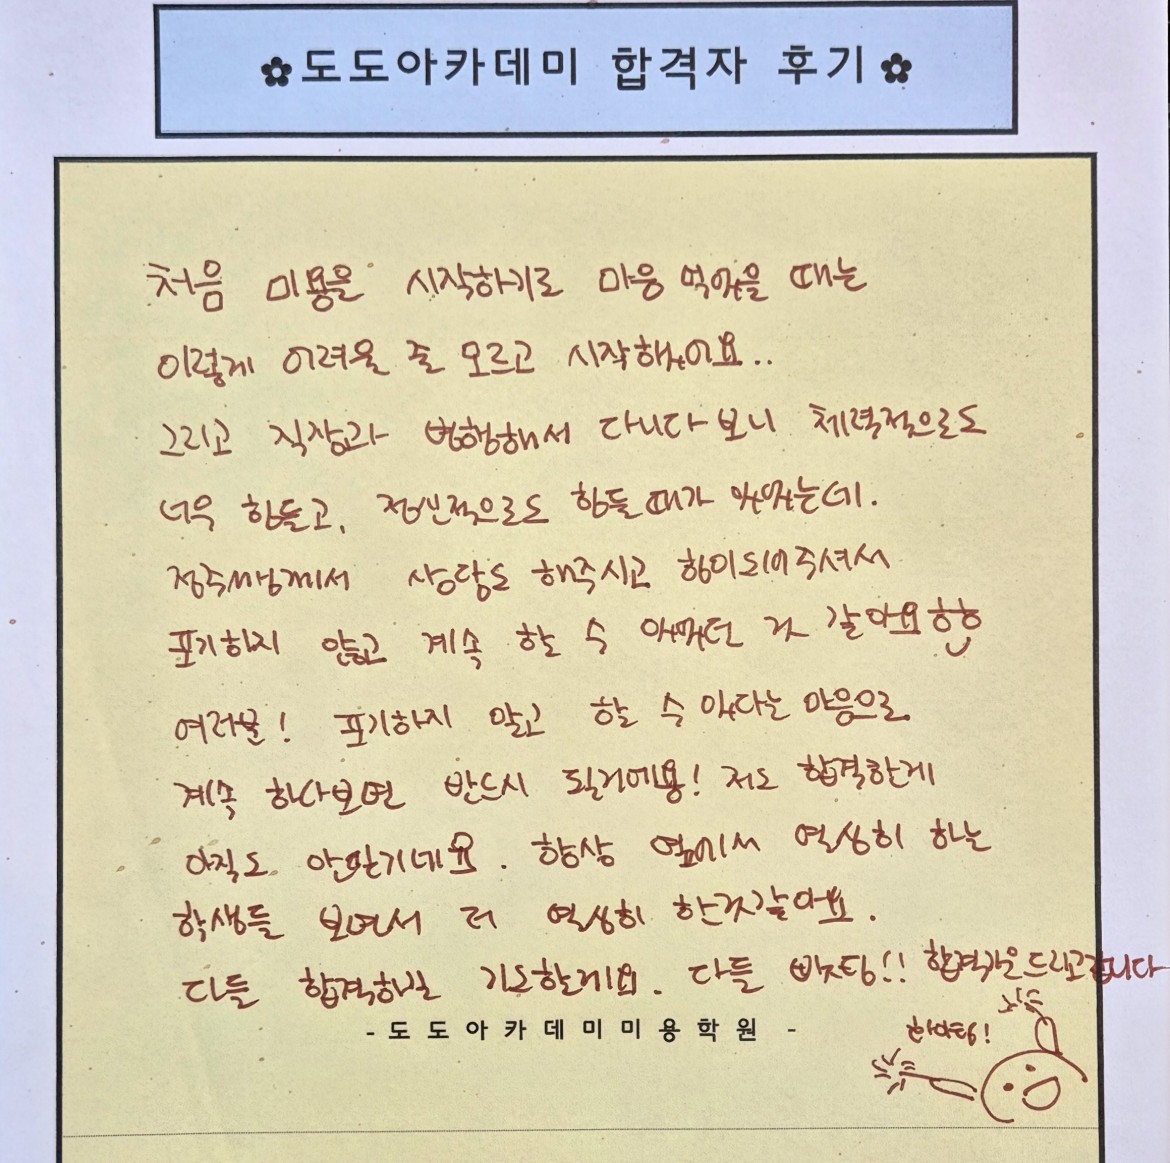 ✿도도아카데미 합격자 후기✿
처음 미용을 시작하기로 마음 먹었을 때는
이렇게 어려울 줄 모르고 시작했어요..
그리고 직장과 병행해서 다니다보니 체력적으로도
너무 힘들고, 정신적으로도 힘들때가 있었는데.
정주쌤께서 상담도 해주시고 힘이되어주셔서
포기하지 않고 계속 할 수 있었던 것 갈아요
여러분! 포기하지 말고 할 수 있다는 마음으로
계속 하다보면 반드시 될거에용! 저도 합격한게
아직도 안믿기네요. 항상 옆에서 열심히 하는
학생들 보면서 더 열심히 한것같아요.
다들 합격하길 기도할게요. 다들 빠팅!! 합격기운드리고갑니다
- 도도아카데미미용학원 -
화이팅!